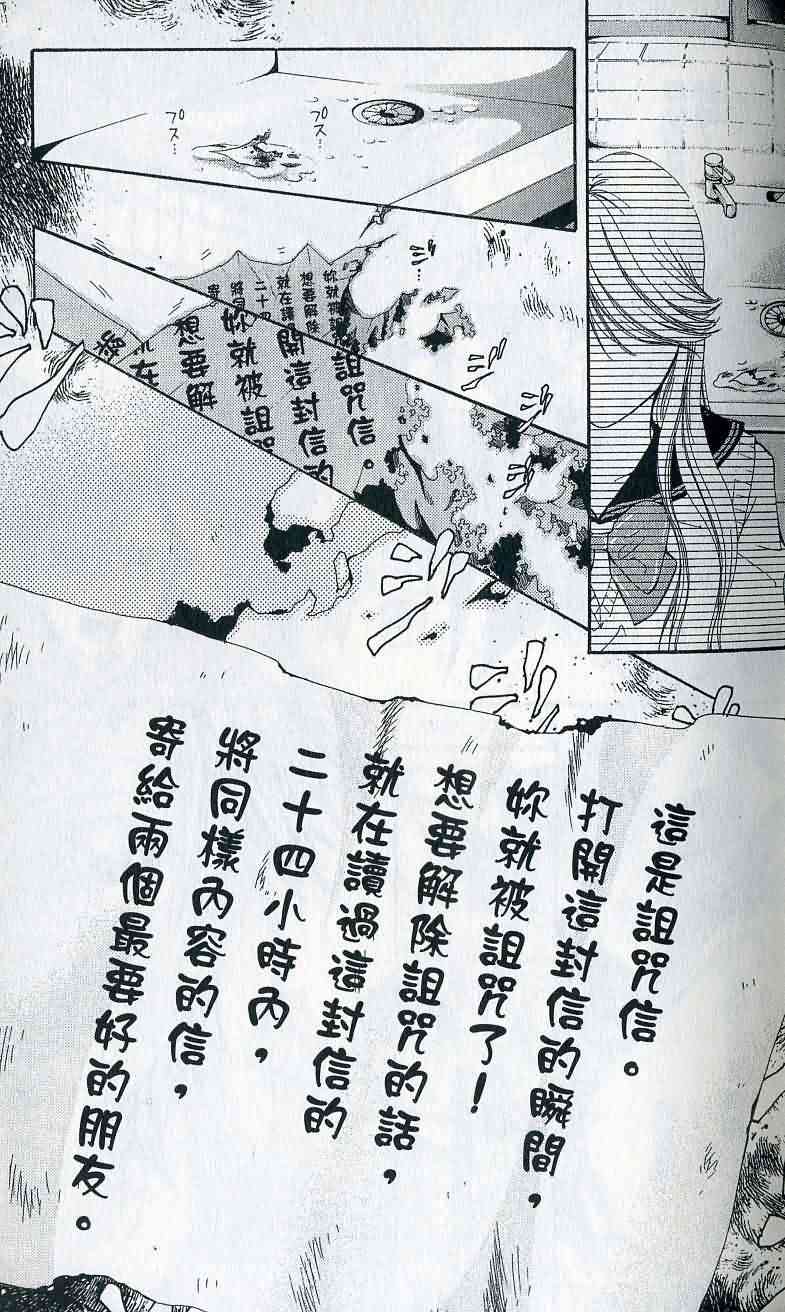 プス…
プス…
妳就被詛
想要解除
就在讀
二十四
將同
寄
詛咒信。
開這封信的
妳就被詛咒
想要解
就在
這是詛咒信。
打開這封信的瞬間，
妳就被詛咒了！
想要解除詛咒的話，
就在讀過這封信的
二十四小時內，
將同樣內容的信，
寄給兩個最要好的朋友。